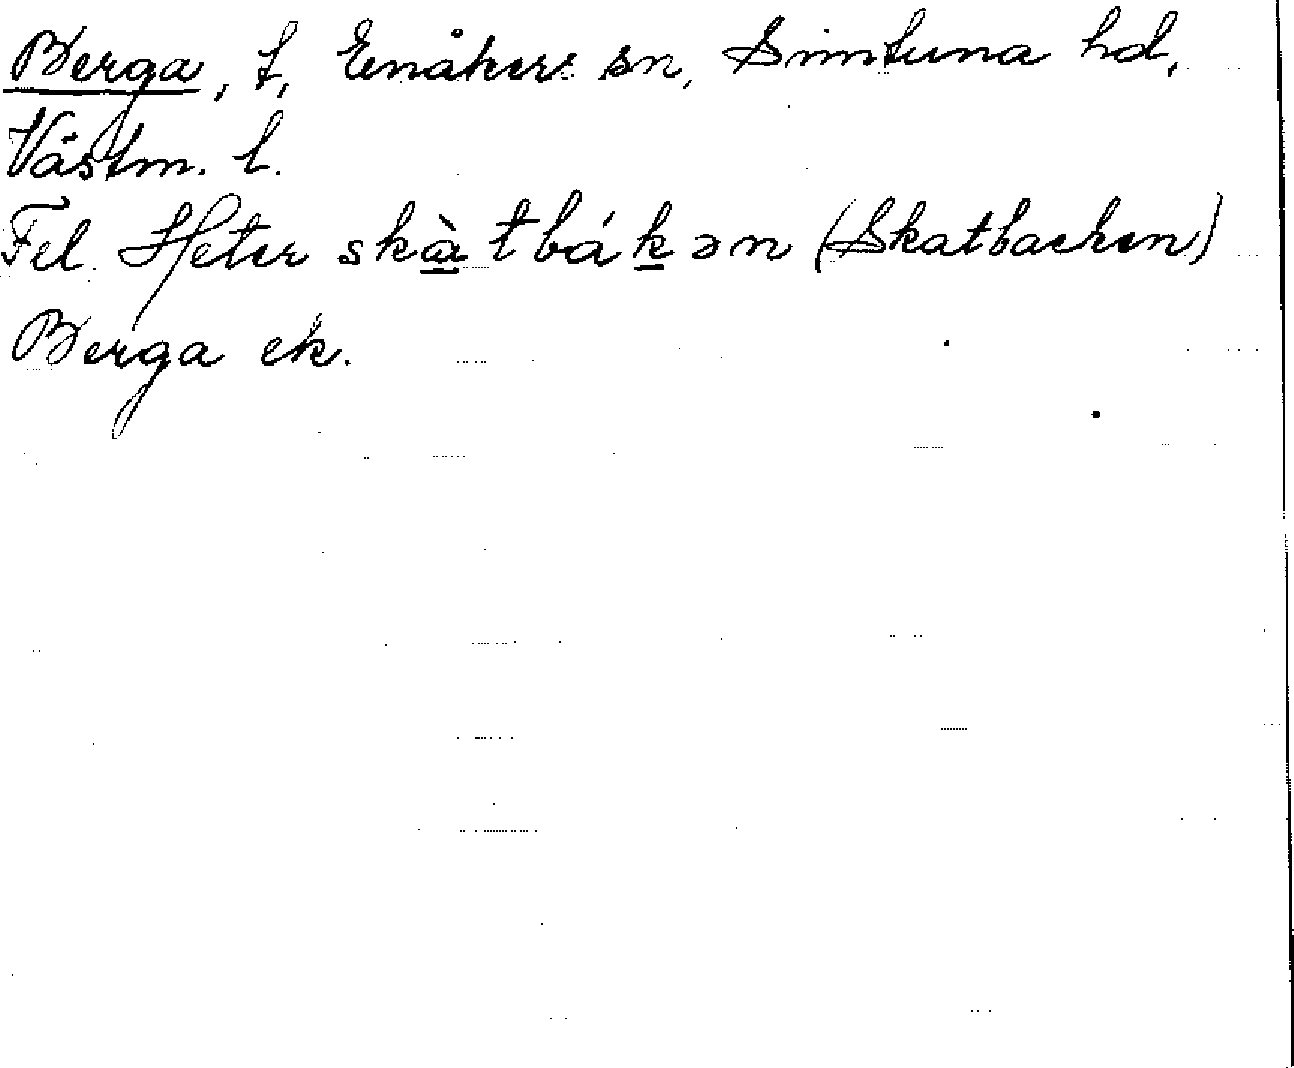 Berga, t, Enåkers sn, Simtuna hd,
Västm. l.
Fel. Heter skàtbákən (Skatbacken)
Berga ek.